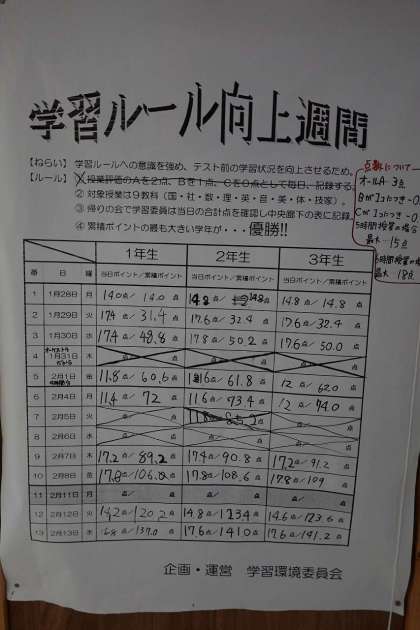 学習ルール向上週間
【ねらい】 学習ルールへの意識を強め、テスト前の学習状況を向上させるため。
【ルール】 ① 授業評価のAを2点、Bを1点、Cを0点として毎日、記録する。
② 対象授業は9教科（国・社・数・理・英・音・美・体・技家）。
③ 帰りの会で学習委員は当日の合計点を確認し中央廊下の表に記録。
④ 累積ポイントの最も大きい学年が・・・優勝!!
点数について
オールA…3点
Bが1コにつき-0.
Cが1コにつき-0.
5時間授業の場合
最大…15点
6時間授業の場
最大 18点
1年生 2年生 3年生
番 日 曜 当日ポイント／累積ポイント 当日ポイント／累積ポイント 当日ポイント／累積ポイント
1 1月28日 月 14.0点／14.0点 14.8点／14.8点 14.8点／14.8点
2 1月29日 火 17.4点／31.4点 17.6点／32.4点 17.6点／32.4点
3 1月30日 水 17.4点／48.8点 17.8点／50.2点 17.6点／50.0点
4 1月31日 木 点／点 点／点 点／点
5 2月1日 金 11.8点／60.6点 11.6点／61.8点 12点／62.0点
6 2月4日 月 11.4点／72点 11.6点／73.4点 12点／74.0点
7 2月5日 火 点／点 点／点
8 2月6日 水 点／点 点／点 点／点
9 2月7日 木 17.2点／89.2点 17.4点／90.8点 17.2点／91.2点
10 2月8日 金 17.0点／106.2点 17.8点／108.6点 17.8点／109点
11 2月11日 月 点／点 点／点 点／点
12 2月12日 火 14.2点／120.2点 14.8点／123.4点 14.6点／123.6点
13 2月13日 水 16.8点／137.0点 17.6点／141.0点 17.6点／141.2点
企画・運営 学習環境委員会